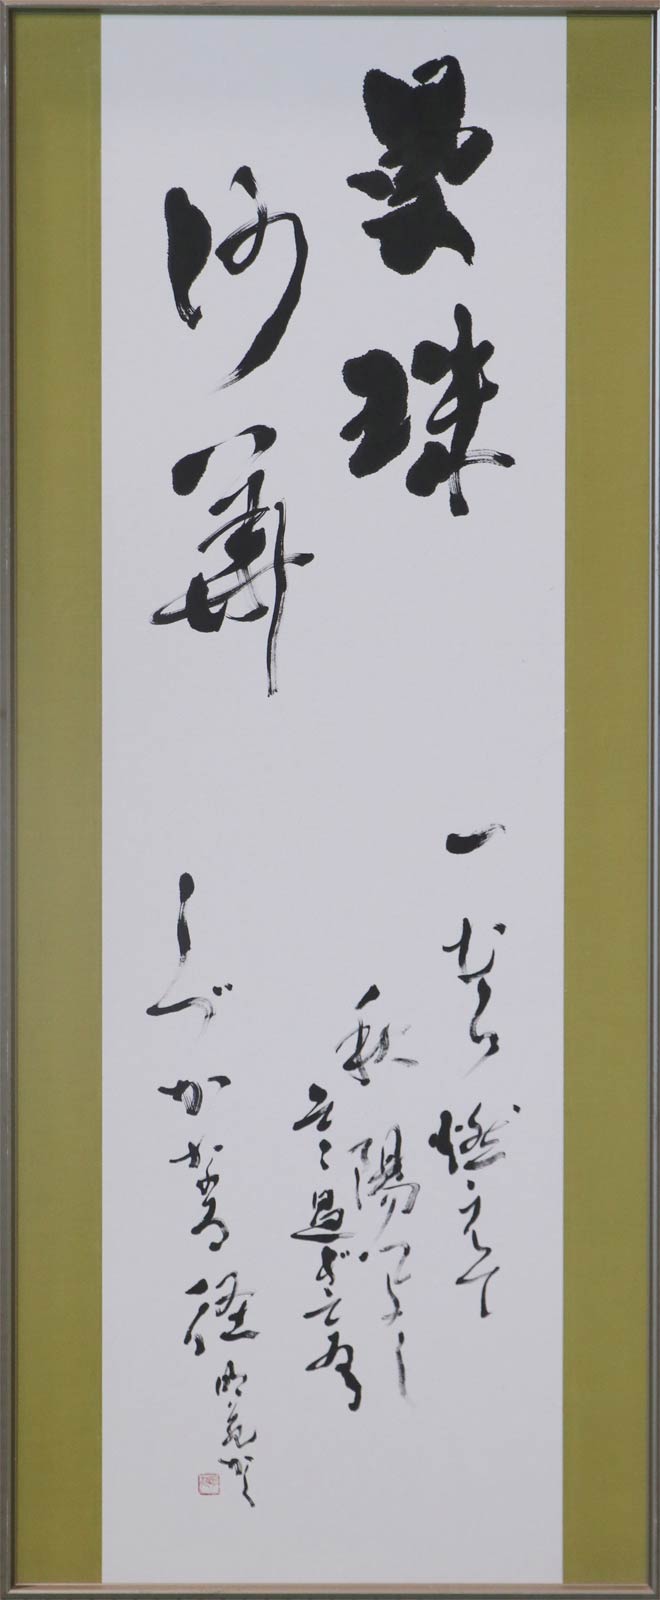 曼珠
沙華
一むら燃えて
秋陽つよし
そこ過ぎてゐる
しづかなる径